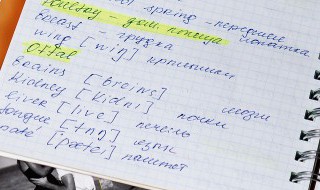 spring - передние
Poultry - дом. птица лопатка
breast - грудка
wing [wiŋ] крылышки
Offal
Brains [breins] мозги
Kidney [kidni] почки
liver [live] печень
tongue [tʌŋ] язык
pate [pætei] паштет